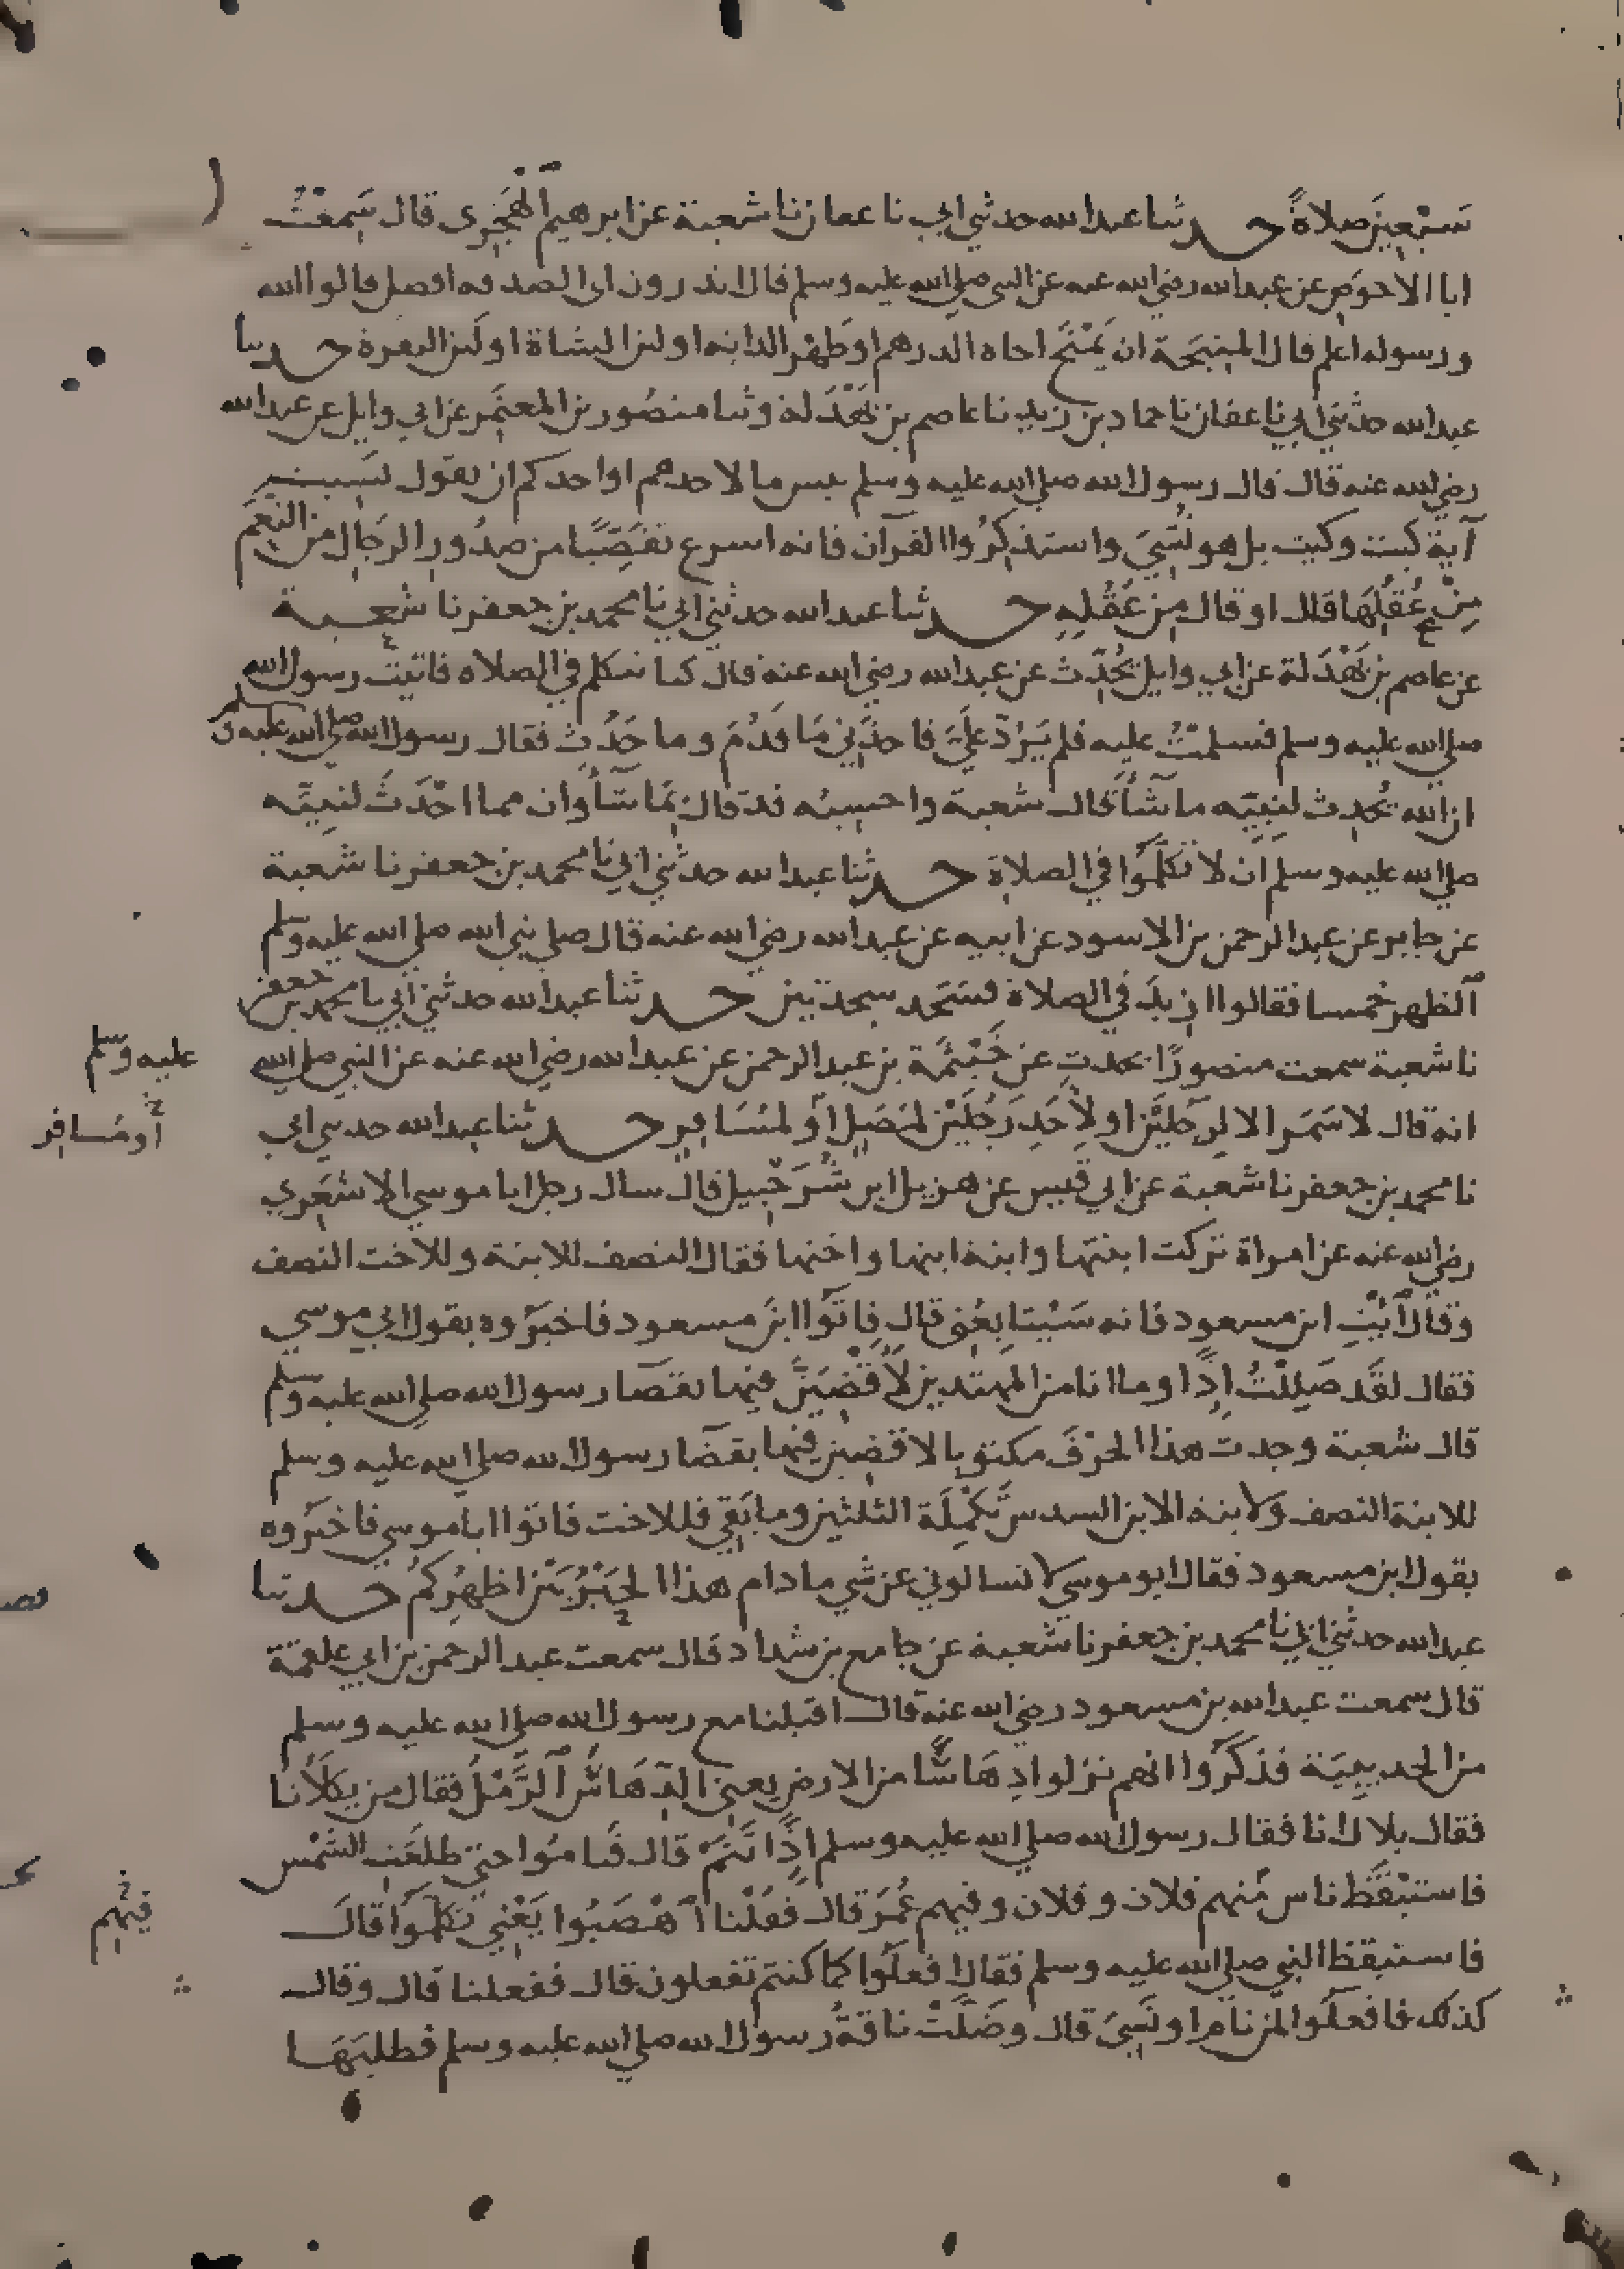 سَبْعِينَ صلاةً حدثنا عبد الله حدثني ابي نا عفان نا شعبة عن ابرهيم الْهَجَرِى قال سَمِعْتُ
ابا الاحوَصِ عن عبد الله رضي الله عنه عن النبي صلي الله عليه وسلم قال اتدرون اي الصدقه افضل قالوا الله
ورسوله اعلم قال المنِيْحَة ان يَمْنَحَ اخاه الدرهم اوظَهْر الدابه او لبن الشاة او لَبَن البقرة حدثنا
عبد الله حدثني ابي نا عفان نا حماد بن زيد نا عاصم بن بَهْدَلة وثنا منصُور بن المعتَمِر عن ابي وايل عن عبد الله
رضي الله عنه قال قال رسول الله صلي الله عليه وسلم بيس ما لاحدهم او احدكم ان يقول نَسِيت
آية كيت وكيت بل هو نُسِّيَ واستذكِرُوا القرآن فانه اسرع تفَصِّيًا من صدُور الرجَال من النَعَم
مِنْ عُقُلِهَا قال او قال مِن عُقُلِهِ حدثنا عبد الله حدثني ابي نا محمد بن جعفر نا شعبة
عن عاصم بن بَهْدَلة عن ابي وايل يُحَدِّث عن عبد الله رضي الله عنه قال كنا نتكلم في الصلاه فاتيت رسول الله
صلي الله عليه وسلم فسلمْتُ عليه فلم يَرُدَّ عليَّ فاخذَنِي مَا قَدُمَ وما حَدُث فقال رسول الله صلي الله عليه وسلم
ان الله يُحْدِث لنبِيِّه ما شَآَ قال شعبة واحسبه قد قال مِمَّا شآَ وان مما احْدَثَ لنبِيِّه
صلي الله عليه وسلم ان لا تَكَلَّمُوا في الصلاة حدثنا عبد الله حدثني ابي نا محمد بن جعفر نا شعبة
عن جابر عن عبد الرحمن بن الاسود عن ابيه عن عبد الله رضي الله عنه قال صلي نبي الله صلي الله عليه وسلم
الظهر خمسا فقالوا ازيدَ في الصلاة فسَجَد سجدتين حدثنا عبد الله حدثني ابي نا محمد بن جعفر
نا شعبة سمعت منصورًا يحدث عن خَيْثَمَة بن عبد الرحمن عن عبد الله رضي الله عنه عن النبي صلي الله
عليه وسلم
انه قال لا سَمَر الا لِرَجُلَيْن او لِأَحَدِ رَجُلَيْن لمُصَلٍ أو لمُسَافِرٍ حدثنا عبد الله حدثني ابي
أو مُسافر
نا محمد بن جعفر نا شعبة عن ابي قيس عن هزيل ابن شُرَحْبِيل قال سال رجل ابا موسي الاشعَري
رضي الله عنه عن امراة تركت ابنتها وابنة ابنها واختها فقال النصف للابنة وللاخت النصف
وقال أئتِ ابن مسعود فانه سَيُتابِعُني قال فاتَوا ابنَ مسعود فاخبَرُوه بقول ابي موسي
فقال لقَد ضَلِلْتُ إذًا وما انا من المهتدين لأَقْضِيَنَّ فيها بقضَا رسول الله صلي الله عليه وسلم
قال شعبة وجدت هذا الحرْفَ مكتوبا لاقضين فيها بقضَا رسول الله صلي الله عليه وسلم
للابنة النصف ولابنة الابن السدس تَكْمِلَة الثلثين وما بَقِي فللاخت فاتوا ابا موسي فاخبَرُوه
بقول ابن مسعود فقال ابو موسي لا تسالوني عن شي ما دام هذا الحَبْرُ بَيْن اظهُرِكمُ حدثنا
عبد الله حدثني ابي نا محمد بن جعفر نا شعبة عن جامع بن شداد قال سمعت عبد الرحمن بن ابي علقمة
قال سمعت عبد الله بن مسعود رضي الله عنه قال اقبلنا مع رسول الله صلي الله عليه وسلم
من الحديبِيَة فذكَرُوا انهم نزلوا دِهَاسًا من الارض يعني الدِّهَاسُ الرَّمْلُ فقال من يكلَأُنا
فقال بلال انا فقال رسول الله صلي الله عليه وسلم إذًا نَنَمْ قال فَنامُوا حتي طلعَت الشمْس
فاستيْقَظ ناس مُنهم فلان وفلان وفيهم عُمَر قال فقُلْنا أهْضِبُوا يَعْنِي تكلَّمُوا قالَ
فيهم
فاستيقظ النبي صلي الله عليه وسلم فقال افعلُوا كما كنتم تفعلون قال ففعلنا قال وقال
كذلك فافعلُوا لمن نام او نَسِيَ قال وضَلَّتْ ناقةُ رسول الله صلي الله عليه وسلم فطلبتها